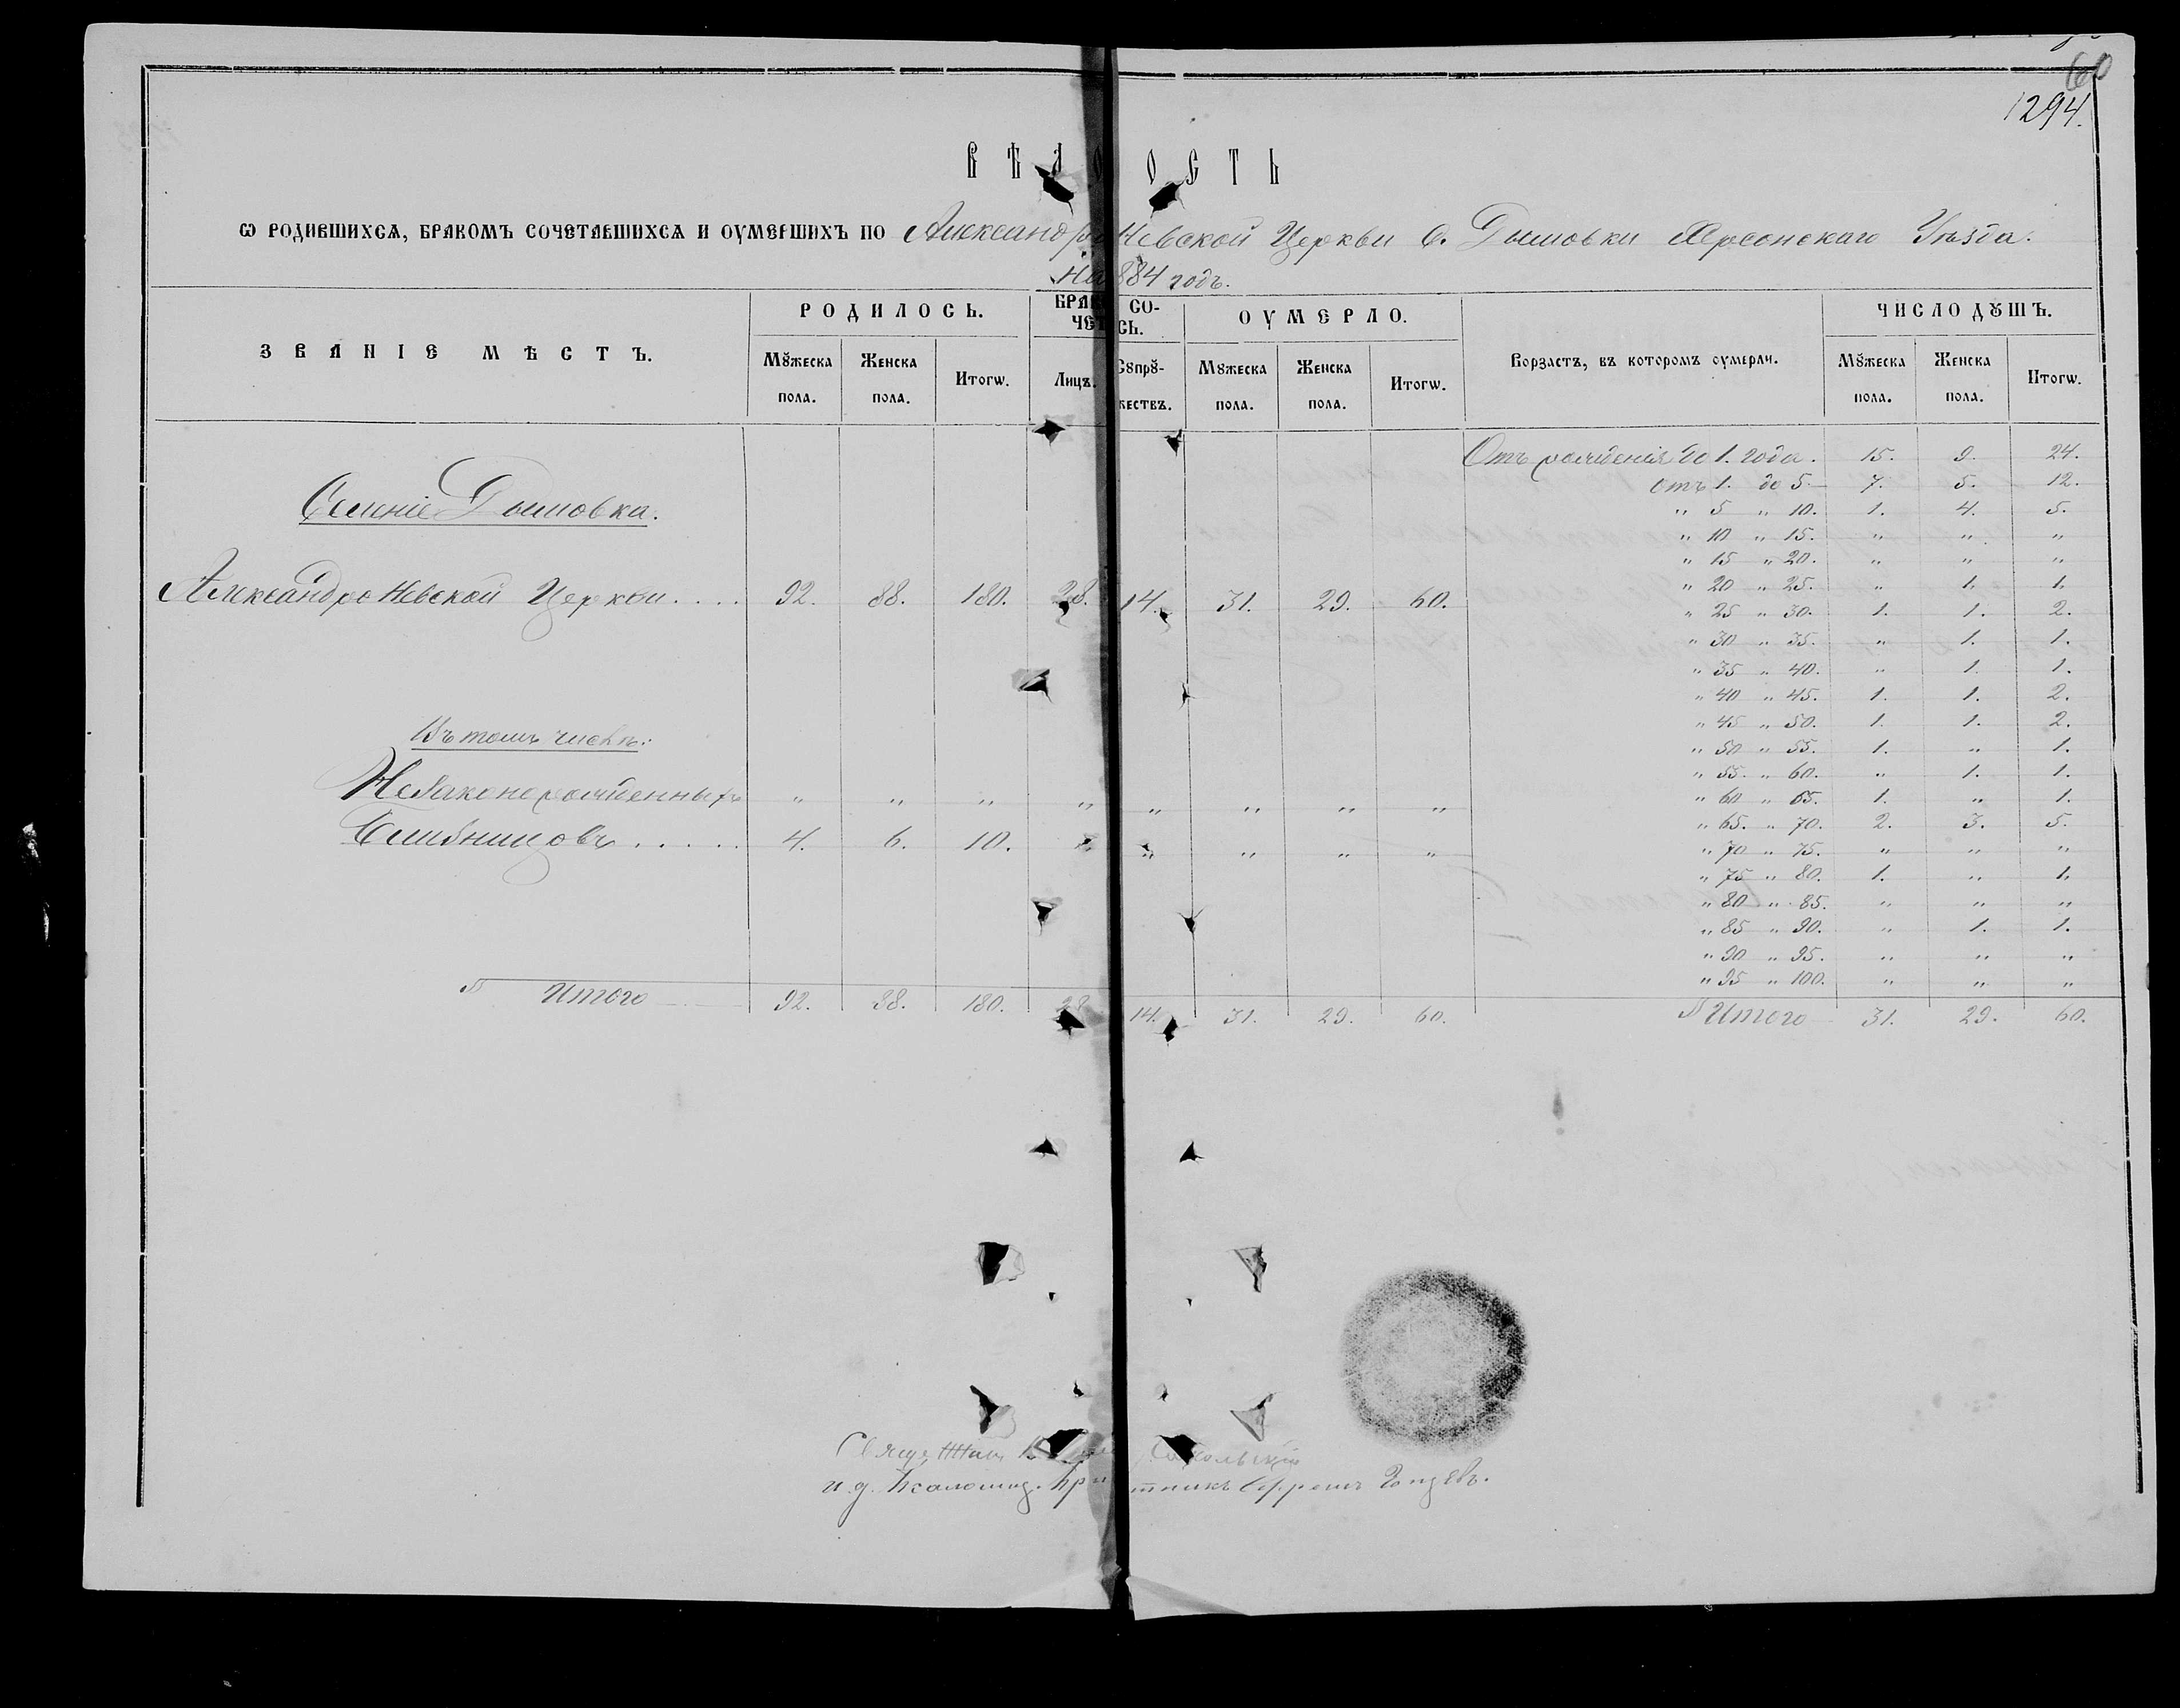 60
1294.
ВѢДОМОСТЬ
Ѡ РОДИВШИХСѦ, БРАКОМЪ СОЧЕТАВШИХСѦ И ОУМЕРШИХЪ ПО Александро Невской Церкви С. Дымовки Херсонскаго Уѣзда.
На 884 годъ.
ЗВАНІЕ МѢСТЪ. РОДИЛОСЬ. БРАКО СО- ОУМЕРЛО. Ворзастъ, въ которомъ оумерли. ЧИСЛО ДꙊШЪ.
ЧЕТ СЬ.
Мꙋжеска пола. Женска пола. Итогѡ. Лицъ. Сꙋпрꙋ- жествъ. Мꙋжеска пола. Женска пола. Итогѡ. Мꙋжеска пола. Женска пола. Итогѡ.
Отъ рожденія до 1. года. 15. 9. 24.
отъ 1. до 5. 7. 5. 12.
Селеніе Дымовка.
" 5 " 10. 1. 4. 5.
" 10 " 15. " " "
" 15 " 20. " " "
" 20 " 25. " 1. 1.
Александро Невской Церкви.... 92. 88. 180. 28. 14. 31. 29. 60.
" 25 " 30. 1. 1. 2.
" 30 " 35. " 1. 1.
" 35 " 40. " 1. 1.
" 40 " 45. 1. 1. 2.
" 45 " 50. 1. 1. 2.
Въ томъ числѣ:
" 50 " 55. 1. " 1.
" 55. " 60. " 1. 1.
Незаконорожденныхъ " " " " " " " "
" 60 " 65. 1. " 1.
" 65. " 70. 2. 3. 5.
Близнецовъ..... 4. 6. 10. " " " " "
" 70 " 75. " " "
" 75 " 80. 1. " 1.
" 80 " 85. " " "
" 85 " 90. " 1. 1.
" 90 " 95. " " "
" 95 " 100. " " "
Итого 92. 88. 180. 28 14. 31. 29. 60. Итого 31. 29. 60.
Сокольскій
и. д. Псаломщ. Ефремъ